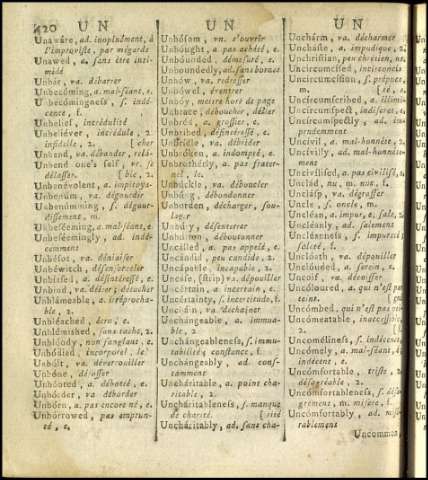 420 UN UN UN
Unaware, ad. inopinément, à
l'improviste, par mégarde
Unawed, a. sans être inti-
midé
Unbár, va. débarrer
Unbecóming, a. mal-séant, e.
Unbecómingness, s. indé-
cence, f.
Unbelief, incrédulité
Unbeliéver, incrédule, 2.
infidelle, 2. [cher
Unbend, va. débander, relâ-
Unbend one's self, vr. se
délasser. [ble, 2.
Unbenévolent, a. impitoya-
Unbenúm, va. dégourdir
Unbenúmming, s. dégour-
dissement, m.
Unbeséeming, a. mal-séant, e.
Unbeséemingly, ad. indé-
cemment
Unbesót, va. déniaiser
Unbewitch, désensorceler
Unbiassed, a. désintéressé, e.
Unbind, va. délier; détacher
Unblámeable, a. irréprocha-
ble, 2.
Unbléached, écru, e.
Unblémished, sans tache, 2.
Unblóody, non sanglant, e.
Unbódied, incorporel, le
Unbólt, va. déverrouiller
Unbóne, désosser
Unbóoted, a. débotté, e.
Unbórder, va. déborder
Unbórn, a. pas encore né, e.
Unbórrowed, pas emprun-
té, e.
Unbósom, vn. s'ouvrir
Unbóught, a. pas acheté, e.
Unbóunded, démesuré, e.
Unbóundedly, ad. sans bornes
Unbów, va. redresser
Unbówel, éventrer
Unbóy, mettre hors de page
Unbráce, déboucler, délier
Unbréd, a. grossier, e.
Unbribed, desintéressé, e.
Unbrídle, va. débrider
Unbróken, a. indompté, e.
Unbrótherly, a. pas frater-
nel, le.
Unbúckle, va. déboucler
Unbúng, débondonner
Unbúrden, décharger, sou-
lager
Unbúry, désenterrer
Unbútton, déboutonner
Uncálled, a. pas appelé, e.
Uncándid, peu candide, 2.
Uncápable, incapable, 2.
Uncáse, (strip) va. dépouiller
Uncértain, a. incertain, e.
Uncértainty, s. incertitude, f.
Uncháin, va. déchainer
Unchángeable, a. immua-
ble, 2.
Unchángeableness, s. imm-
tabilité, constance, f.
Unchángeably, ad. con-
stamment
Uncháritable, a. point cha-
ritable, 2.
Uncháritableness, s. manque
de charité. [rité
Uncháritably, ad. sans cha-
Unchárm, va. décharmer
Uncháste, a. impudique, 2.
Unchristian, peu chrétien, ne.
Uncircumcised, incirconcis
Uncircumcísion, s. prépuce,
m. [té, e.
Uncircumscríbed, a. illimi-
Uncírcumspect, indiscret, e.
Uncírcumspectly, ad. im-
prudemment
Uncívil, a. mal-honnête, 2.
Uncívilly, ad. mal-honnête-
ment
Uncívilised, a. pas civilisé, e.
Unclád, nu, m. nue, f.
Unclásp, va. dégrafer
Uncle, s. oncle, m.
Uncléan, a. impur, e, sale, 2.
Uncléanly, ad. salement
Uncléanness, s. impureté,
saleté, f.
Unclóath, va. dépouiller
Unclóuded, a. serein, e.
Uncóif, va. décoiffer
Uncóloured, a. qui n'est pas
teint. [gné
Uncómbed, qui n'est pas pei-
Uncómeatable, inaccessible,
2.
Uncómeliness, s. indécence,
Uncómely, a. mal-séant, e,
indécent, e.
Uncómfortable, triste, 2.
désagréable, 2.
Uncómfortableness, s. désa-
grément, m. misère, f.
Uncómfortably, ad. mise-
rablement
Uncommon,